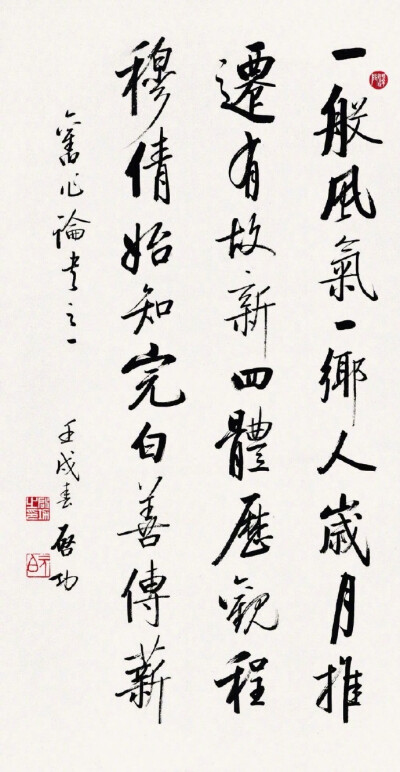 一般風氣一鄉人歲月推
遷有故新四體歷觀程
穆倩始知完白善傳薪
舊作論書之一
壬戌春 啓功
元白